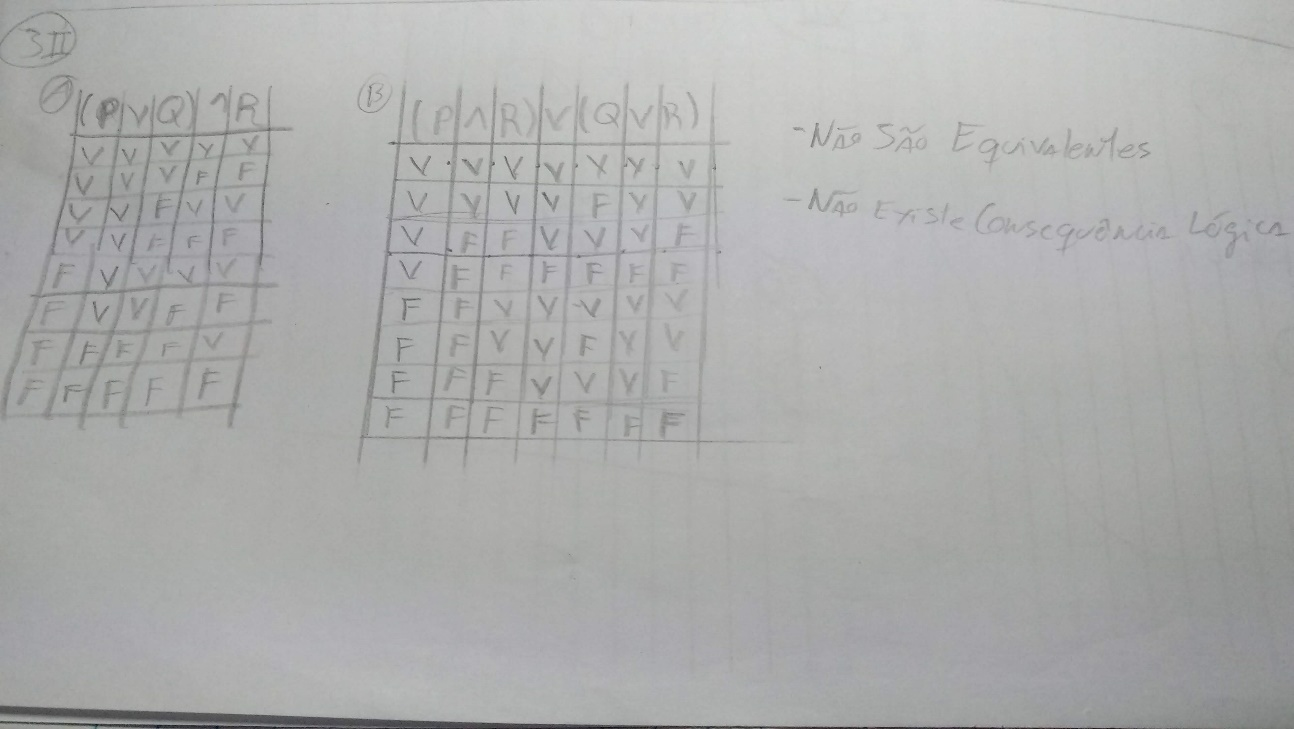 3II
A (P V Q) ∧ R
V V V V V
V V V F F
V V F V V
V V F F F
F V V V V
F V V F F
F F F F V
F F F F F
B (P ∧ R) V (Q V R)
V V V V V V V
V V V V F V V
V F F V V V F
V F F F F F F
F F V V V V V
F F V V F V V
F F F V V V F
F F F F F F F
- NÃO SÃO Equivalentes
- NÃO Existe Consequência Lógica